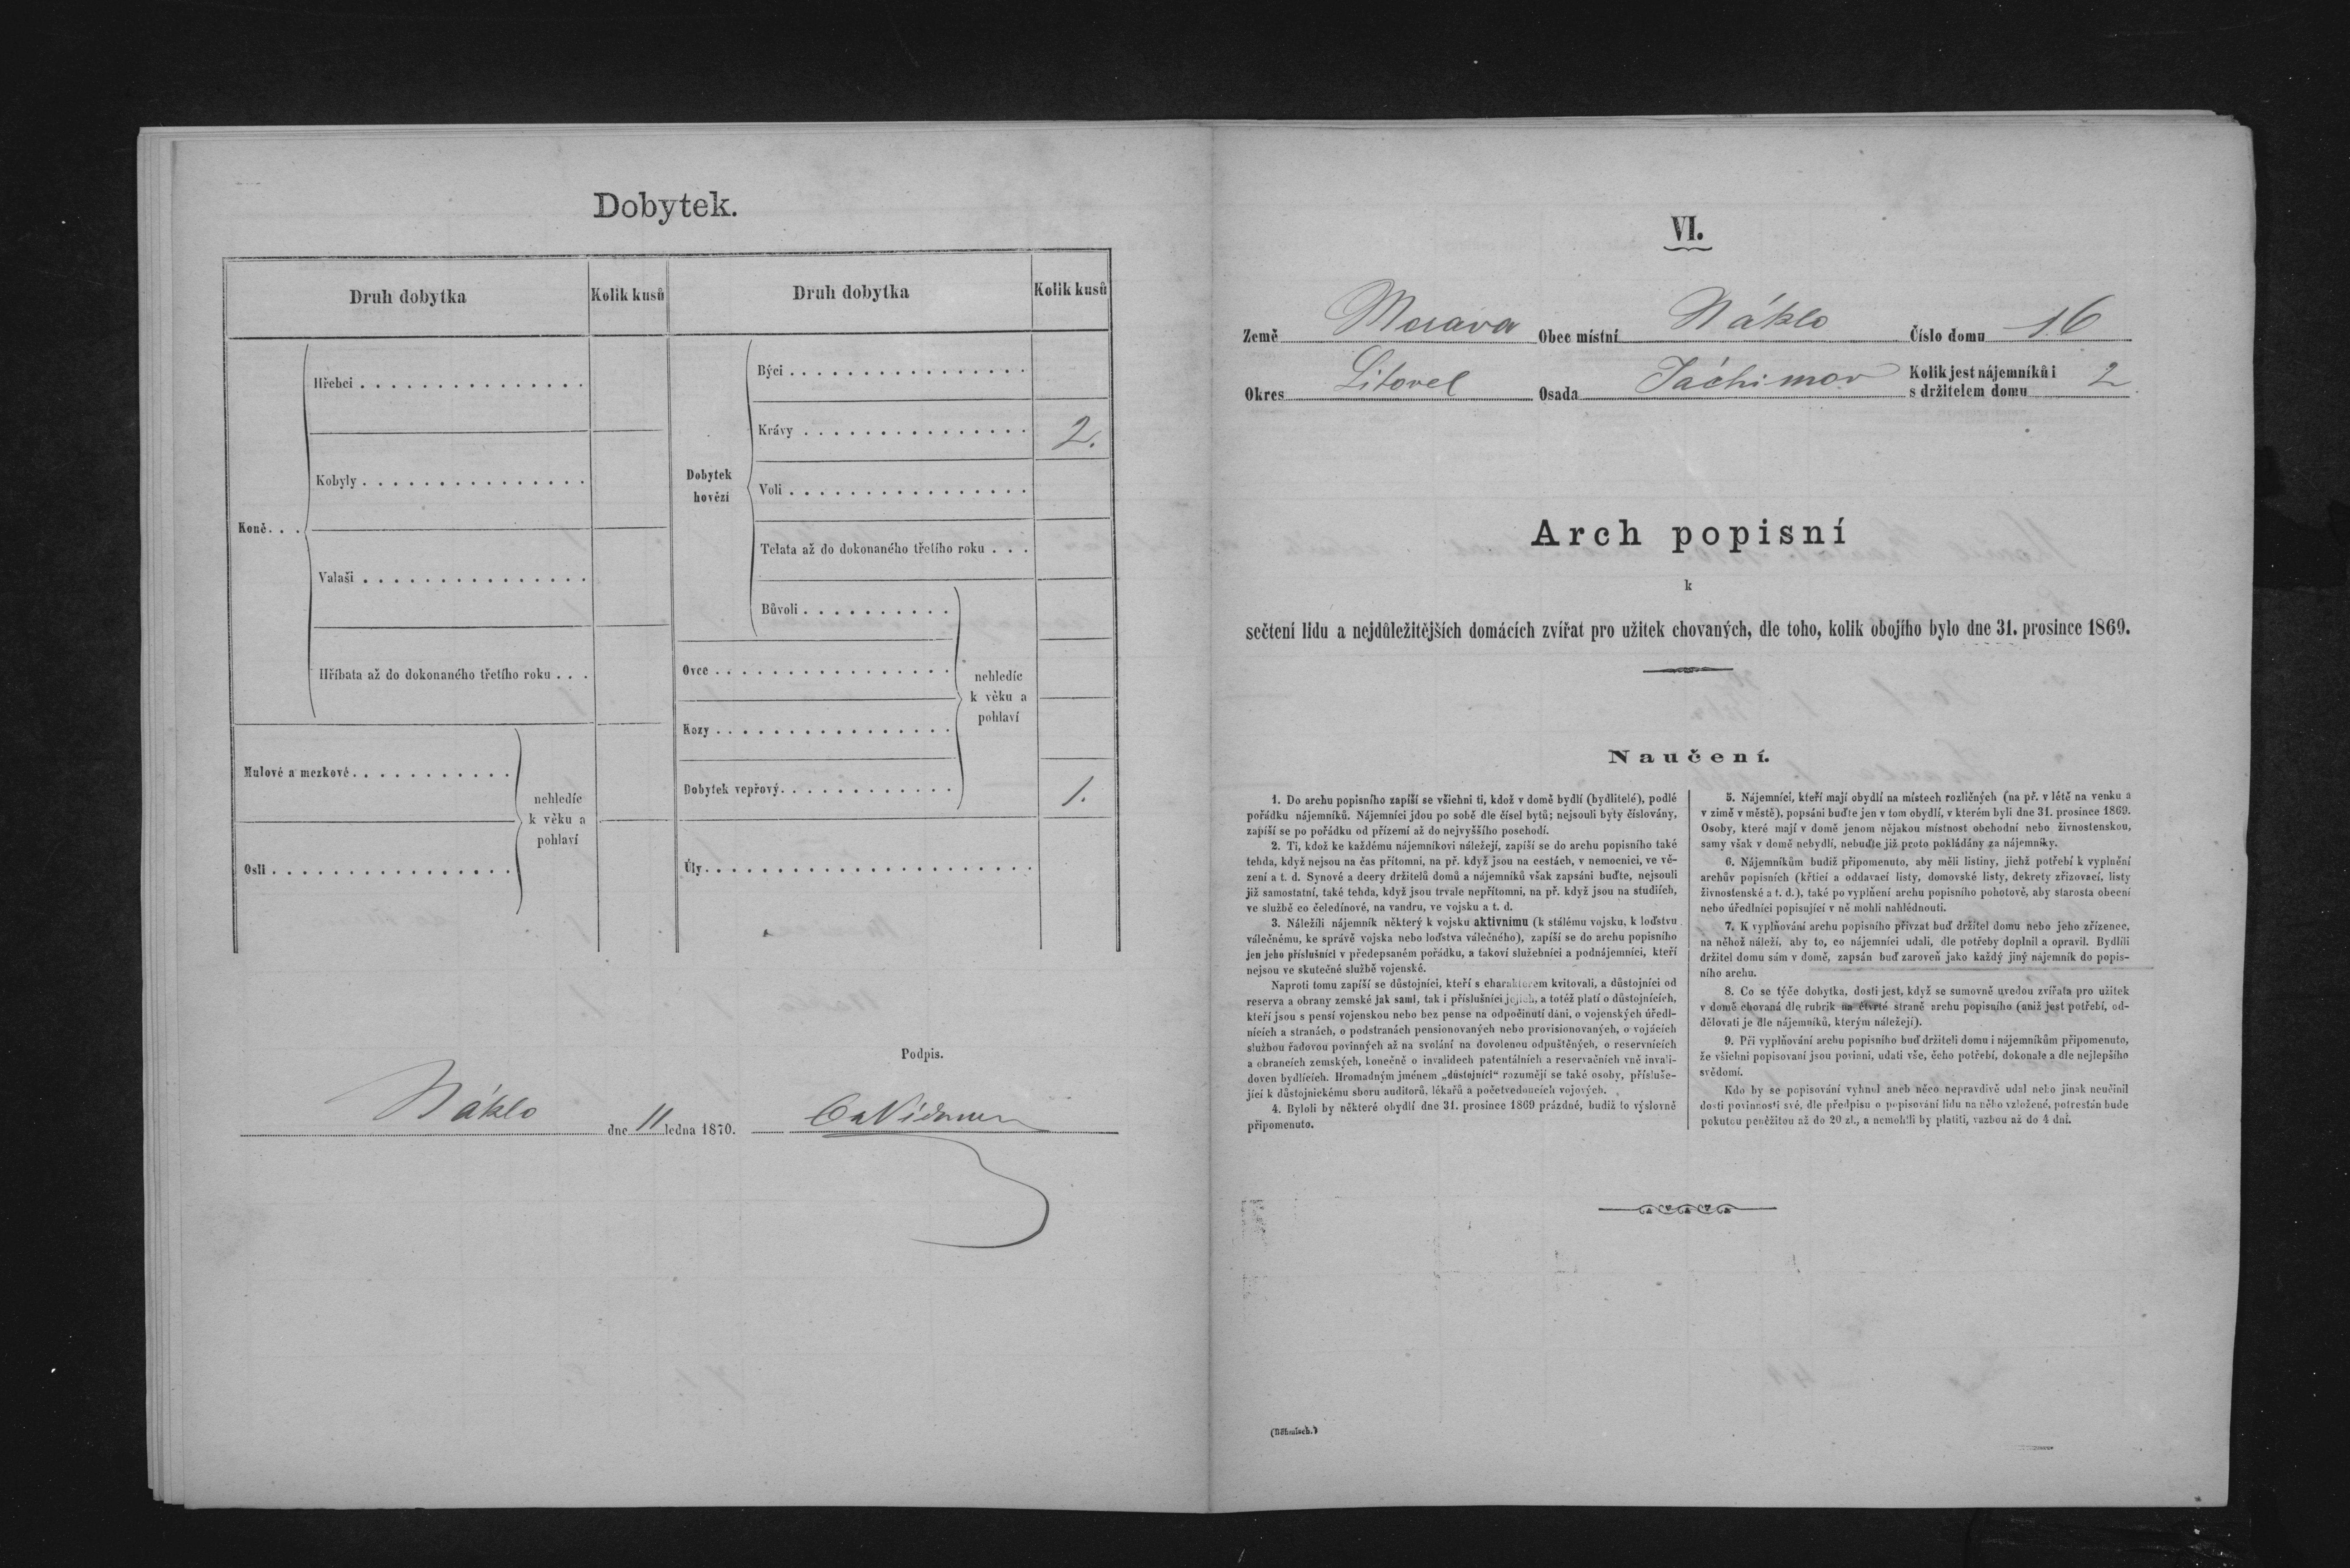 Dobytek.
Druh dobytka
Kolik kusů
Druh dobytka
Kolik kusů
Koně. . .
Hřebci
Kobyly
Valaši
Hříbata až do dokonaného třetího roku . . .
Mulové a mezkové
Osli
nehledíc
k věku a
pohlaví
Dobytek
hovězí
Býci
Krávy
2.
Voli
Telata až do dokonaného třetího roku . . .
Bůvoli
Ovce
Kozy
Dobytek vepřový
1.
nehledíc
k věku a
pohlaví
Úly
Podpis.
Náklo dne 11 ledna 1870.
VI.
Země Morava Obec místní Náklo Číslo domu 16
Okres Litovel Osada Jáchimov Kolik jest nájemníků i
s držitelem domu 2
Arch popisní
k
sečtení lidu a nejdůležitějších domácích zvířat pro užitek chovaných, dle toho, kolik obojího bylo dne 31. prosince 1869.
Naučení.
1. Do archu popisního zapíší se všichni ti, kdož v domě bydlí (bydlitelé), podlé
pořádku nájemníků. Nájemníci jdou po sobě dle čísel bytů; nejsouli byty číslovány,
zapíší se po pořádku od přízemí až do nejvyššího poschodí.
2. Ti, kdož ke každému nájemníkovi náležejí, zapíší se do archu popisního také
tehda, když nejsou na čas přítomni, na př. když jsou na cestách, v nemocnici, ve vě-
zení a t. d. Synové a dcery držitelů domů a nájemníků však zapsáni buďte, nejsouli
již samostatní, také tehda, když jsou trvale nepřítomni, na př. když jsou na studiích,
ve službě co čeledínové, na vandru, ve vojsku a t. d.
3. Náležíli nájemník některý k vojsku aktivnímu (k stálému vojsku, k loďstvu
válečnému, ke správě vojska nebo loďstva válečného), zapíší se do archu popisního
jen jeho příslušníci v předepsaném pořádku, a takoví služebníci a podnájemníci, kteří
nejsou ve skutečné službě vojenské.
Naproti tomu zapíší se důstojníci, kteří s charakterem kvitovali, a důstojníci od
reserva a obrany zemské jak sami, tak i příslušníci jejich, a totéž platí o důstojnících,
kteří jsou s pensí vojenskou nebo bez pense na odpočinutí dáni, o vojenských úředl-
nících a stranách, o podstranách pensionovaných nebo provisionovaných, o vojácích
službou řadovou povinných až na svolání na dovolenou odpuštěných, o reservnících
a obrancích zemských, konečně o invalidech patentálních a reservačních vně invali-
doven bydlících. Hromadným jménem „důstojníci“ rozumějí se také osoby, přísluše-
jící k důstojnickému sboru auditorů, lékařů a početvedoucích vojových.
4. Byloli by některé obydlí dne 31. prosince 1869 prázdné, budiž to výslovně
připomenuto.
5. Nájemníci, kteří mají obydlí na místech rozličných (na př. v létě na venku a
v zimě v městě), popsáni buďte jen v tom obydlí, v kterém byli dne 31. prosince 1869.
Osoby, které mají v domě jenom nějakou místnost obchodní nebo živnostenskou,
samy však v domě nebydlí, nebuďte již proto pokládány za nájemníky.
6. Nájemníkům budiž připomenuto, aby měli listiny, jichž potřebí k vyplnění
archův popisních (křticí a oddavací listy, domovské listy, dekrety zřizovací, listy
živnostenské a t. d.), také po vyplňení archu popisního pohotově, aby starosta obecní
nebo úředlníci popisující v ně mohli nahlédnouti.
7. K vyplňování archu popisního přivzat buď držitel domu nebo jeho zřízenec,
na něhož náleží, aby to, co nájemníci udali, dle potřeby doplnil a opravil. Bydlíli
držitel domu sám v domě, zapsán buď zaroveň jako každý jiný nájemník do popis-
ního archu.
8. Co se týče dobytka, dosti jest, když se sumovně uvedou zvířata pro užitek
v domě chovaná dle rubrik na čtvrté straně archu popisního (aniž jest potřebí, od-
dělovati je dle nájemníků, kterým náležejí).
9. Při vyplňování archu popisního buď držiteli domu i nájemníkům připomenuto,
že všichni popisovaní jsou povinni, udati vše, čeho potřebí, dokonale a dle nejlepšího
svědomí.
Kdo by se popisování vyhnul aneb něco nepravdivě udal nebo jinak neučinil
dosti povinnosti své, dle předpisu o popisování lidu na něho vzložené, potrestán bude
pokutou peněžitou až do 20 zl., a nemohlli by platiti, vazbou až do 4 dní.
(Böhmisch.)